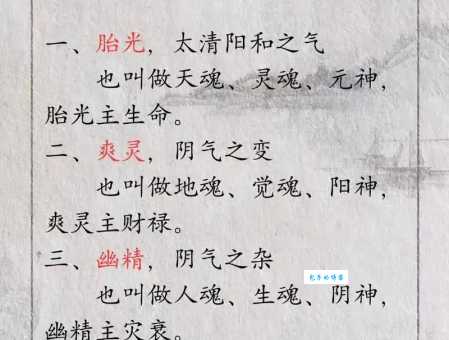 一、胎光，太清阳和之气
也叫做天魂、灵魂、元神，
胎光主生命。
二、爽灵，阴气之变
也叫做地魂、觉魂、阳神，
爽灵主财禄。
三、幽精，阴气之杂
也叫做人魂、生魂、阴神，
幽精主灾衰。